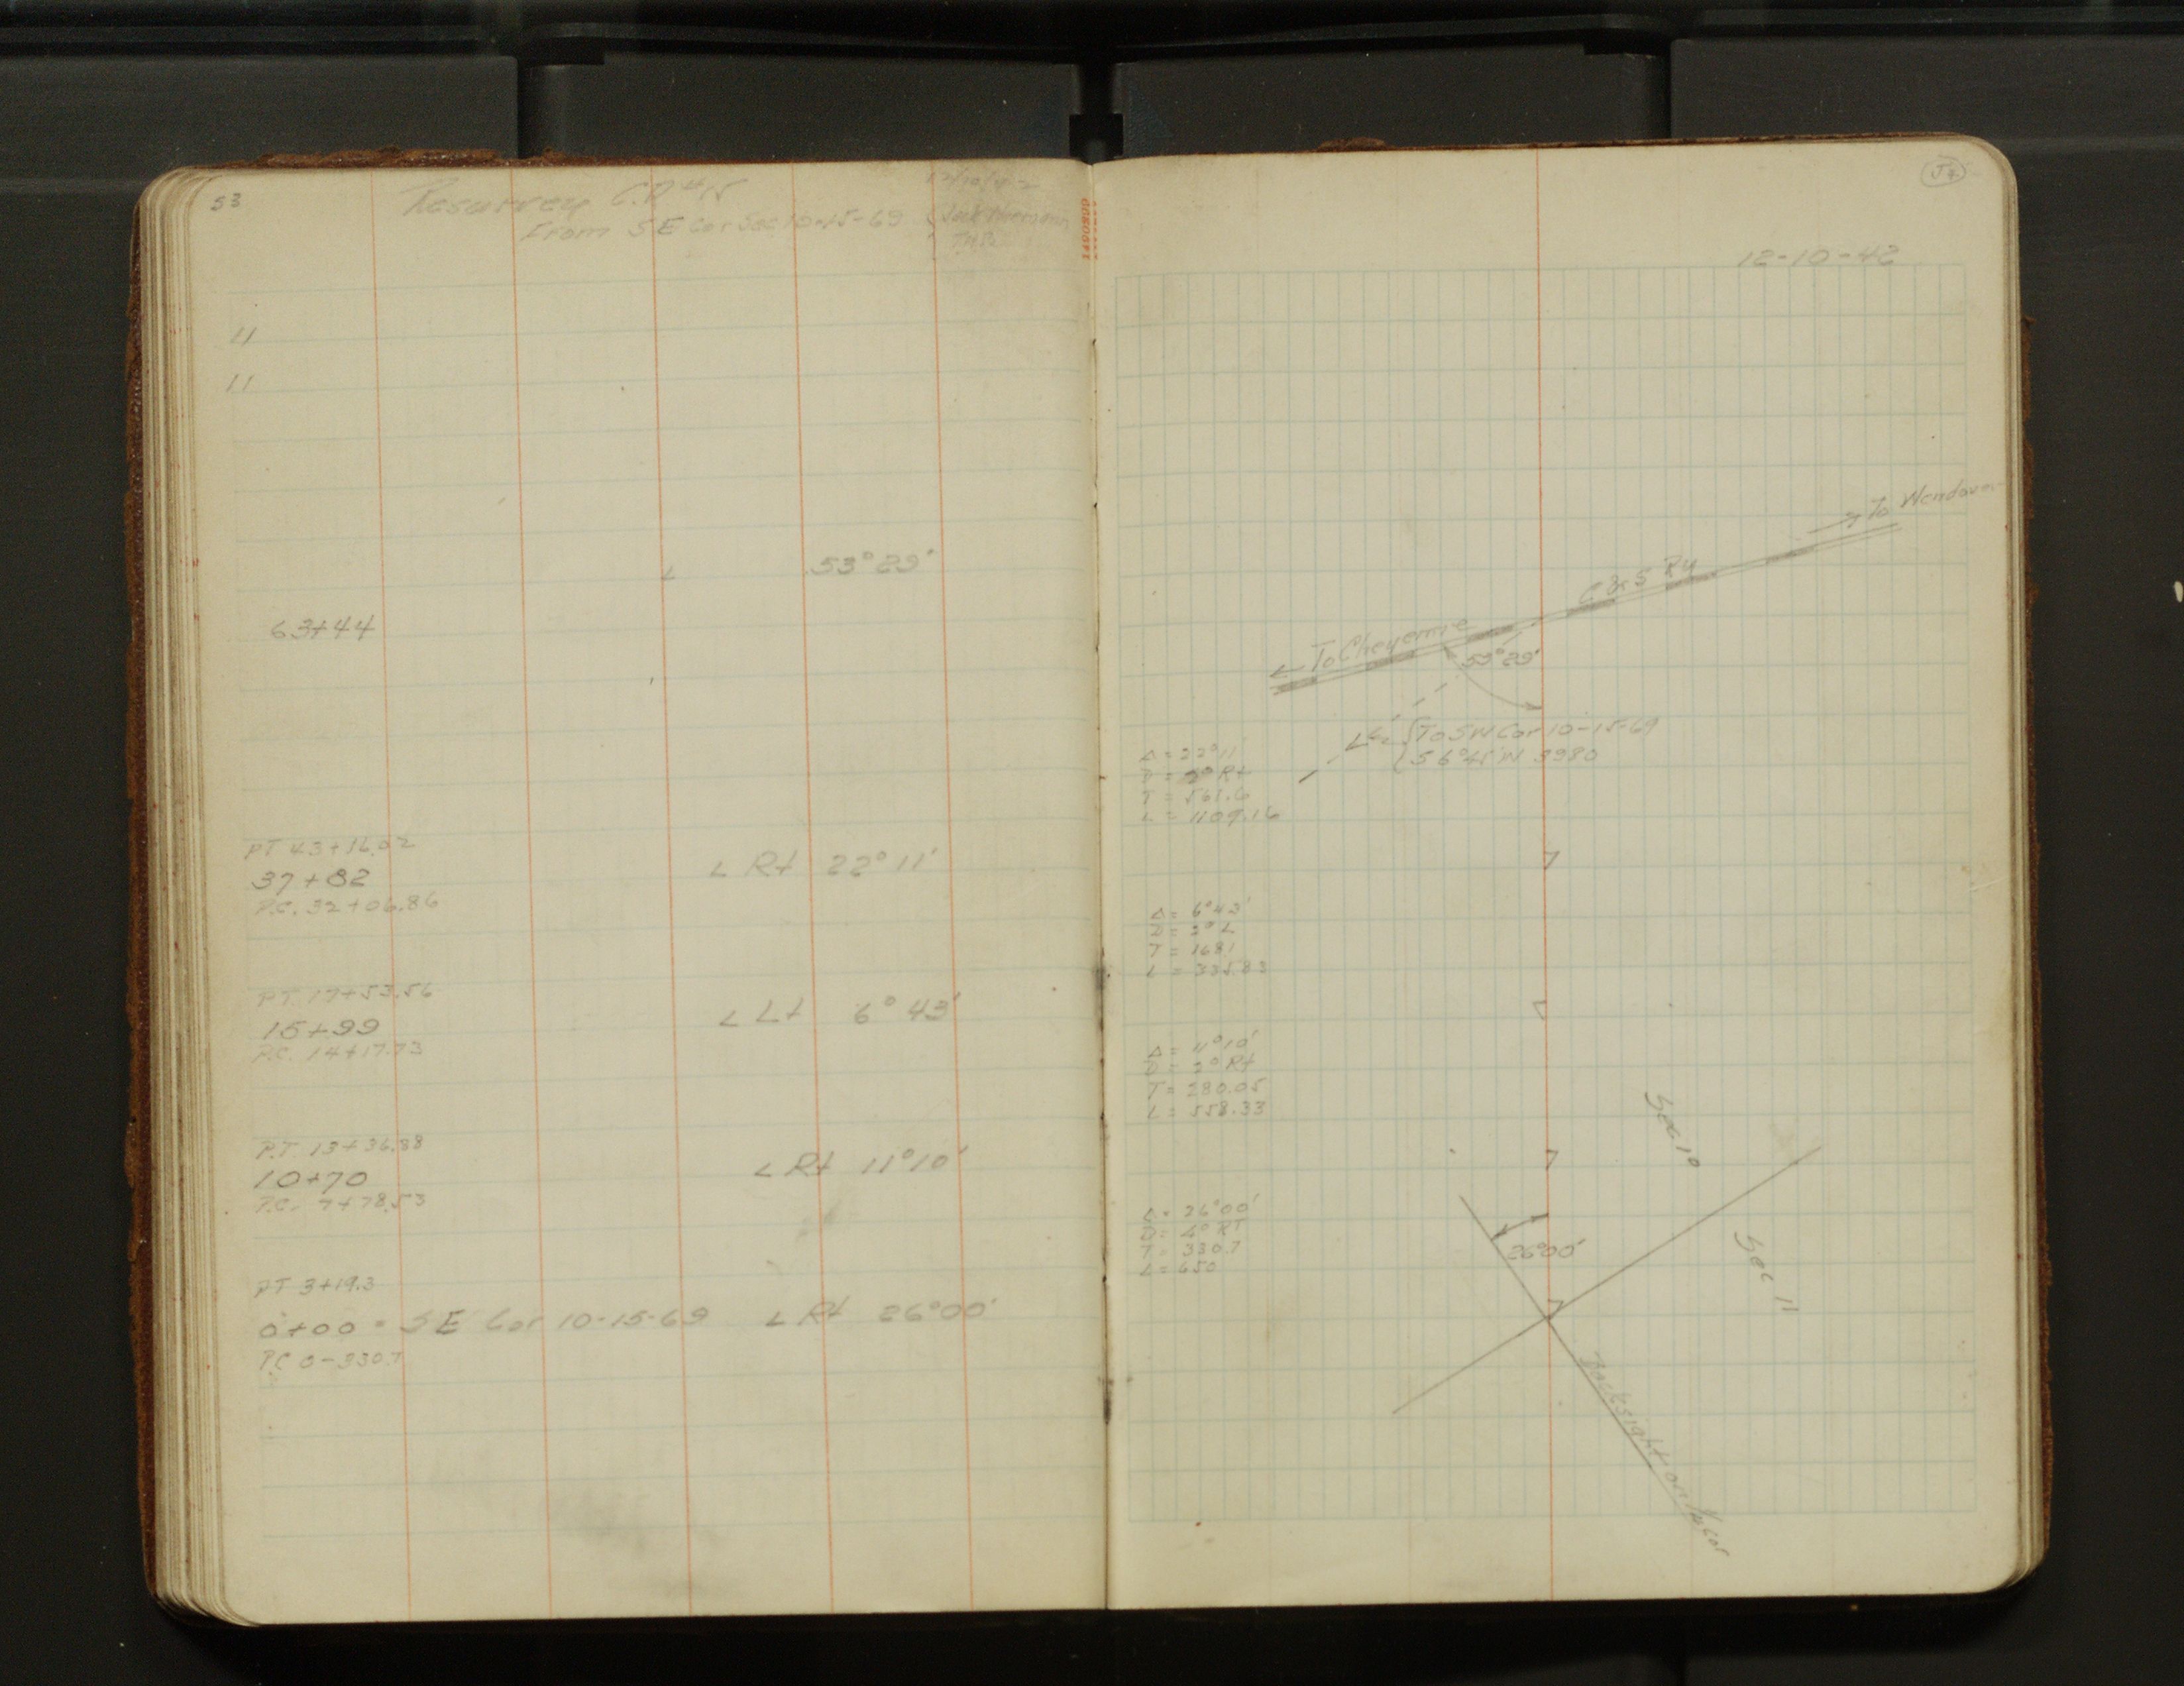 53
Resurvey C.R #15
From SE Cor Sec 10-15-69
12/10/42
Jack
11
11
∠ 53°29'
63+44
PT 43+16.02
37+82
P.C. 32+06.86
∠ Rt 22°11'
PT 17+53.56
15+99
P.C. 14+17.73
∠ Lt 6°43'
P.T 13+36.88
10+70
P.C. 7+78.53
∠ Rt 11°10'
PT 3+19.3
0+00 = SE Cor 10-15-69 ∠ Rt 26°00'
P.C 0-330.7
54
12-10-42
→ To Wendover
C & S Ry
← To Cheyenne
53°29'
To SW Cor 10-15-69
S 6°45' W 3980
Δ = 22°11'
D = 2° Rt
T = 561.6
L = 1109.16
Δ = 6°43'
D = 2° L
T = 1681
L = 335.83
Δ = 11°10'
D = 2° Rt
T = 280.05
L = 558.33
Sec 10
Δ = 26°00'
D = 4° RT
T = 330.7
L = 650
26°00'
Sec 11
Backsight on